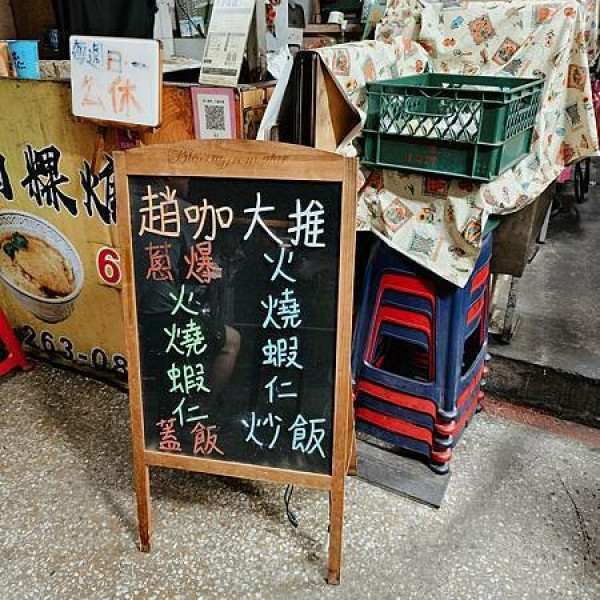 每週日一
公休
粿焿
6
263-08
趙咖大推
蔥爆
火燒蝦仁
蓋飯
火燒蝦仁
炒飯